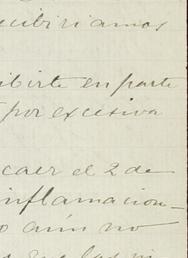 recibiriamos
ibirte en parte
por excesiva
caer el 2 de
inflamacion-
o aún no